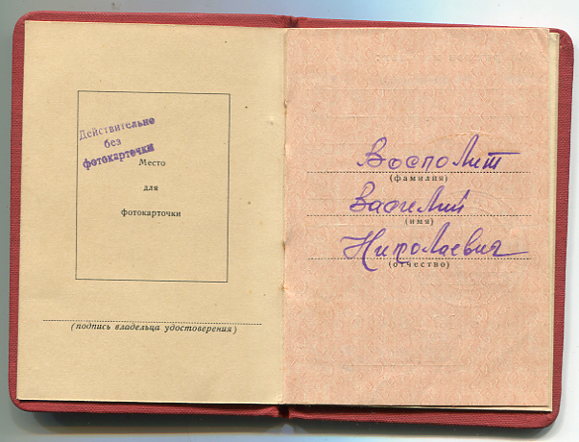 Действительно
без
фотокарточки
Место
для
фотокарточки
(подпись владельца удостоверения)
Восполит
(фамилия)
Василий
(имя)
Николаевич
(отчество)